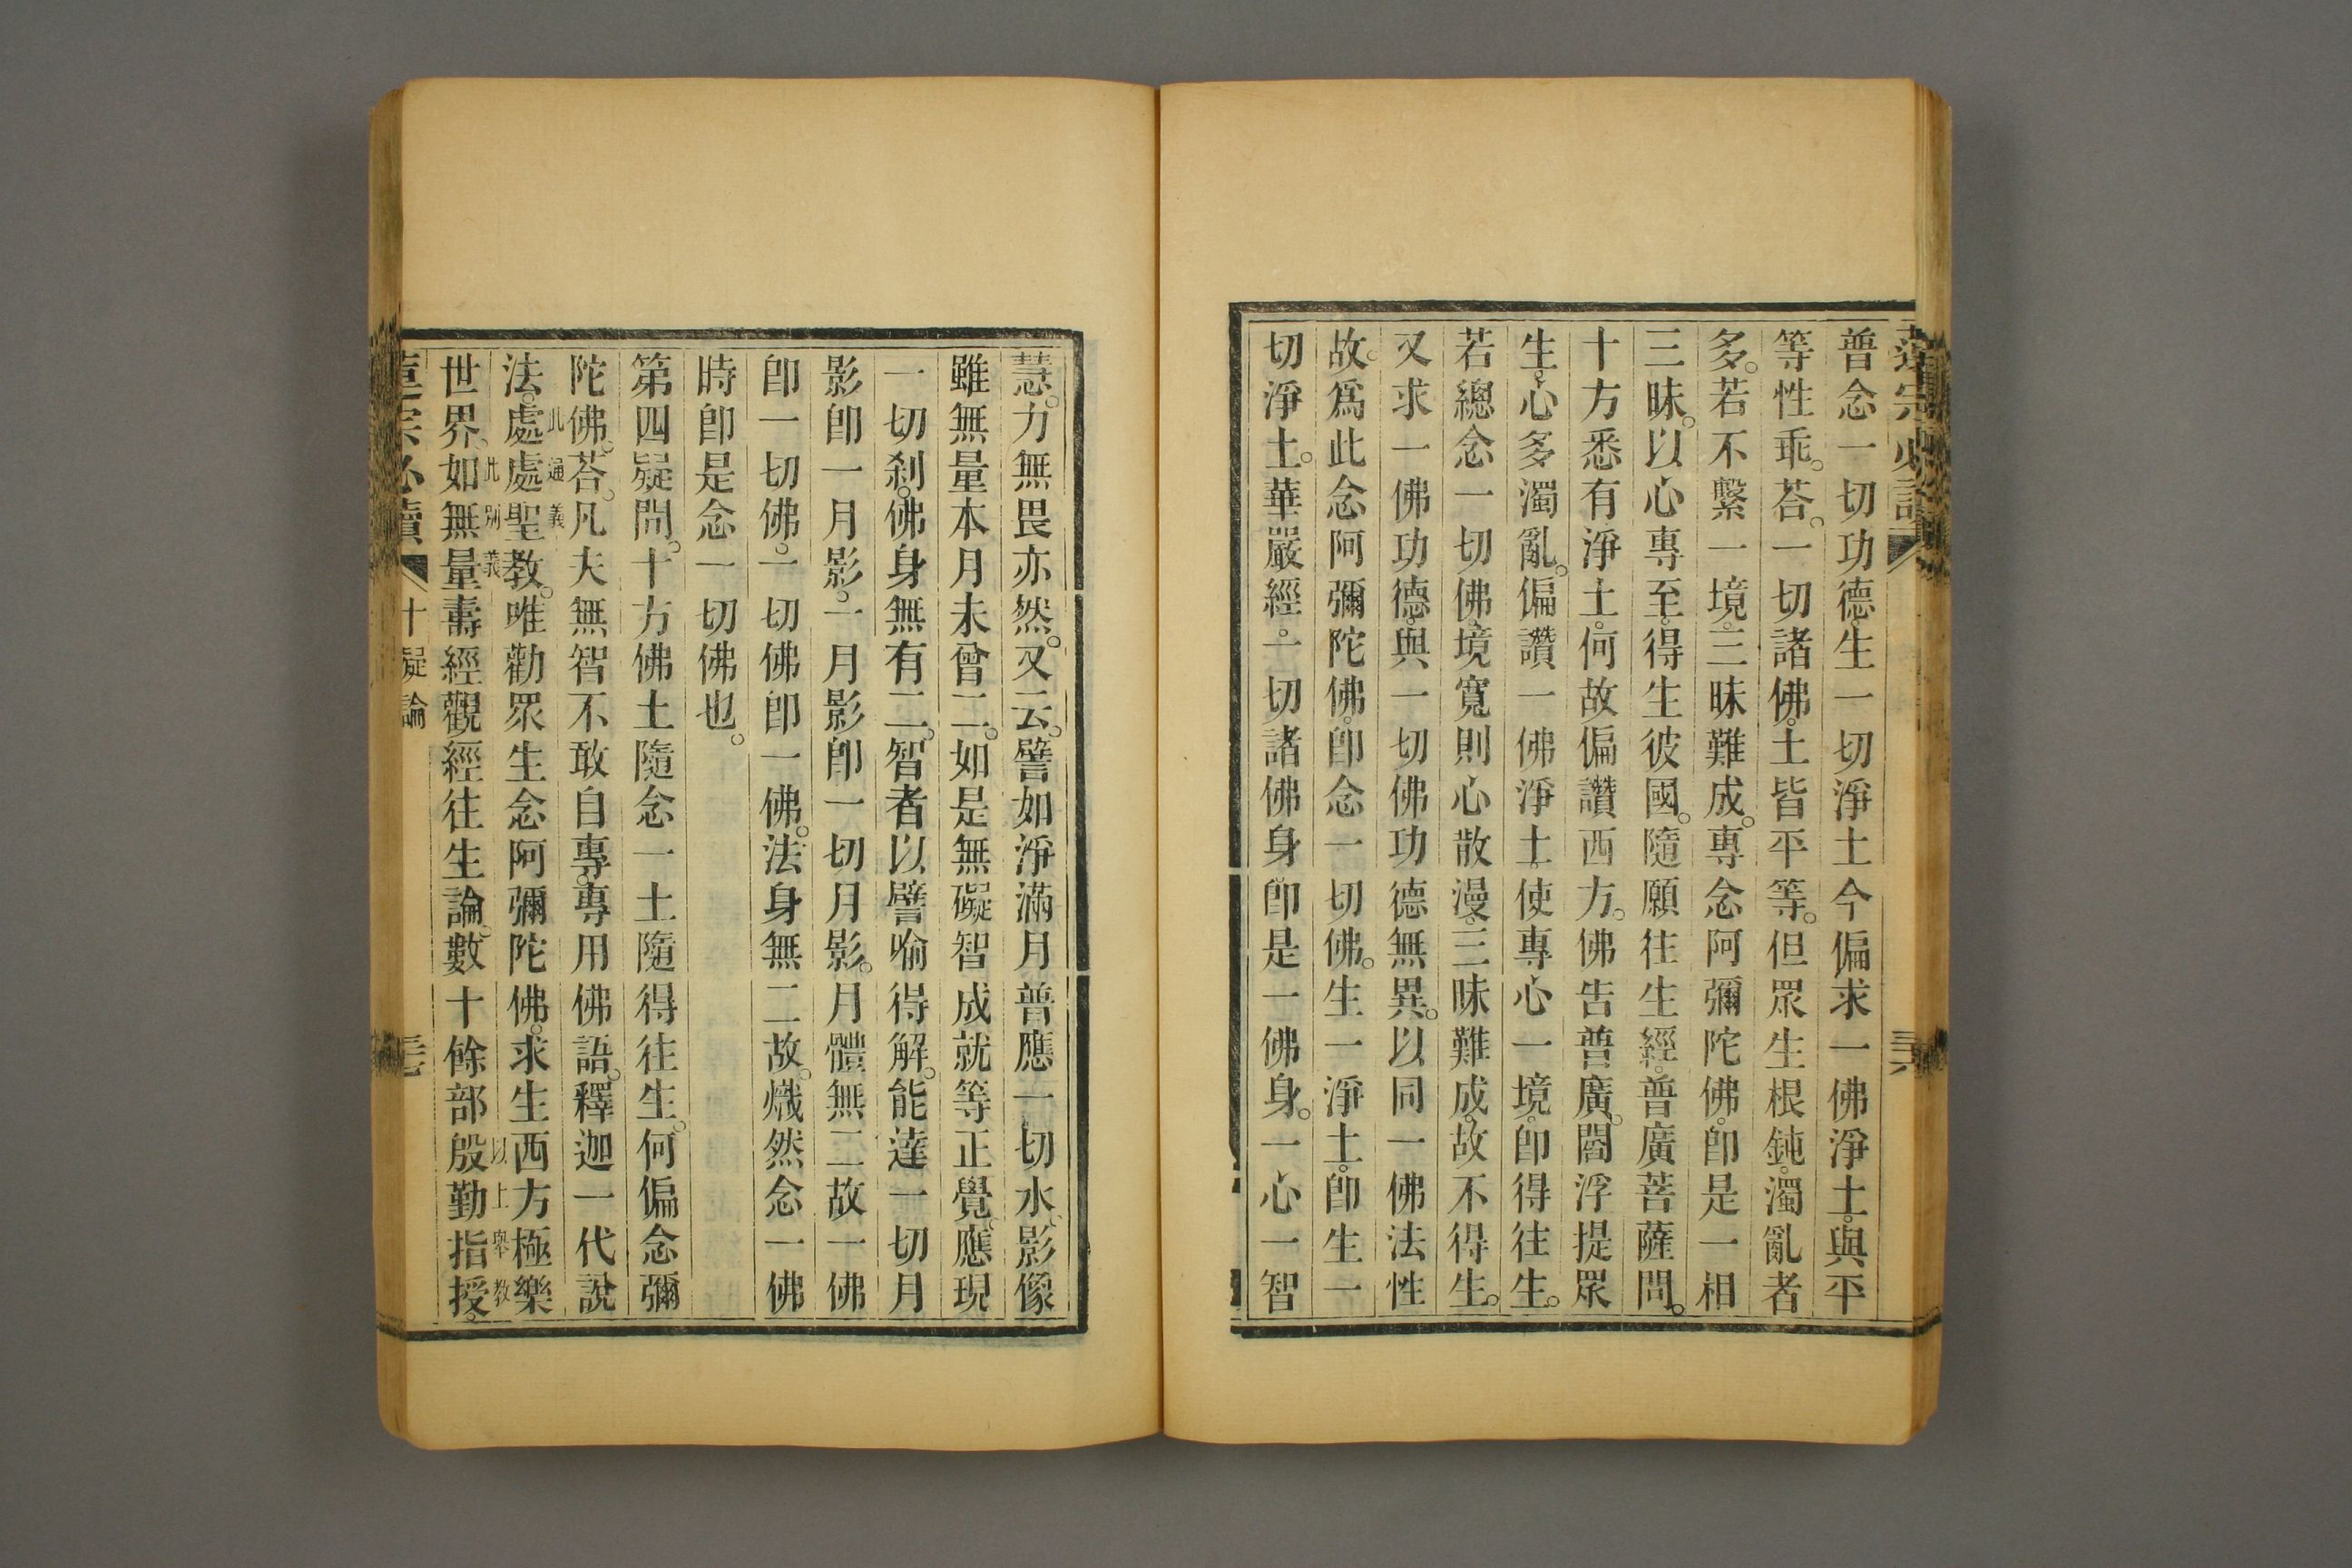 蓮宗必讀
三六
普念一切功德。生一切淨土今偏求一佛淨土。與平
等性乖。荅。一切諸佛。土皆平等。但眾生根鈍。濁亂者
多。若不繫一境。三昧難成。專念阿彌陀佛。卽是一相
三昧。以心專至。得生彼國。隨願往生經。普廣菩薩問。
十方悉有淨土。何故偏讚西方。佛告普廣。閻浮提眾
生。心多濁亂。偏讚一佛淨土。使專心一境。卽得往生。
若總念一切佛。境寬則心散漫。三昧難成。故不得生。
又求一佛功德。與一切佛功德無異。以同一佛法性
故。爲此念阿彌陀佛。卽念一切佛。生一淨土。卽生一
切淨土。華嚴經。一切諸佛身卽是一佛身。一心一智
慧。力無畏亦然。又云。譬如淨滿月普應一切水、影像
雖無量本月未曾二。如是無礙智成就等正覺、應現
一切刹。佛身無有二。智者以譬喻得解。能達一切月
影卽一月影。一月影卽一切月影。月體無二故一佛
卽一切佛。一切佛卽一佛。法身無二故。熾然念一佛
時卽是念一切佛也。
第四疑問。十方佛土隨念一土隨得往生。何偏念彌
陀佛。荅。凡夫無智不敢自專。專用佛語。釋迦一代說
法。處處聖教。此通義唯勸眾生念阿彌陀佛。求生西方極樂
世界、此別義如無量壽經觀經往生論。數十餘部殷勤指授。以上舉教
蓮宗必讀
十疑論
三七